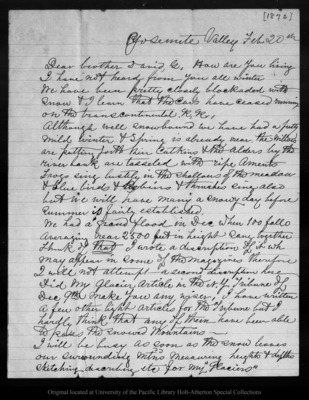 [1872]
Yosemite Valley Feb. 20th
Dear brother David G, How are you living
I have not heard from you all winter
We have been pretty closely blockaded with
snow & I learn that the cars have ceased running
on the transcontinental R.R.,
Although well snowbound we have had a pretty
mild winter & Spring is already near the willows
are putting forth their Catkins & the Alders by the
river bank are tasseled with ripe Aments
Frogs sing lustily in the shallows of the meadow
& blue birds & robins & thrushes sing also
but we will have many a snowy day before
summer is fairly established.
We had a grand flood in Dec when 100 falls
averaging near 2500 feet in height sang together
think of that I wrote a description of it wh
may appear in some of the magazines therefore
I will not attempt a second description here
Did My Glacier article in the N.Y. Tribune of
Dec 9th make you any wiser, I have written
a few other light articles for the Tribune but I
hardly think that any of them have been able
to leave the snowed Mountains
I will be busy as soon as the snow leaves
our surrounding Mtns Measuring heights & depths
sketching describing etc for my "Glaciers"
Original located at University of the Pacific Library Holt-Atherton Special Collections